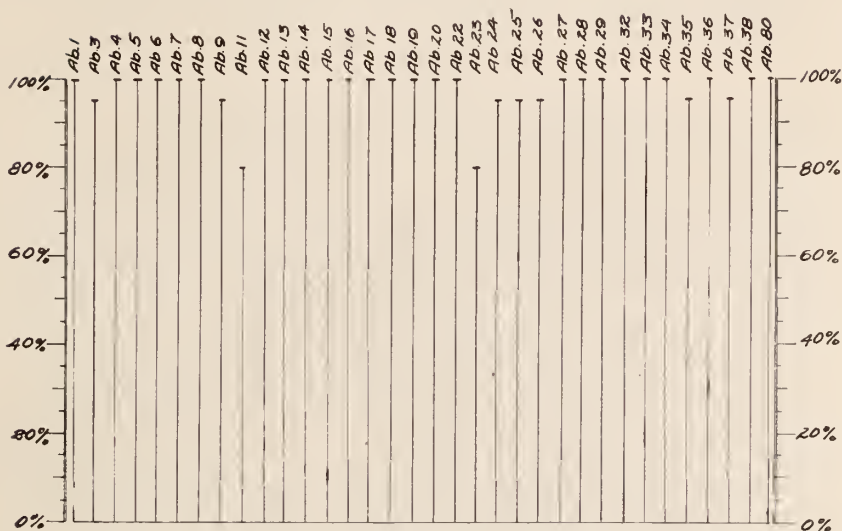 Ab.1 Ab.3 Ab.4 Ab.5 Ab.6 Ab.7 Ab.8 Ab.9 Ab.11 Ab.12 Ab.13 Ab.14 Ab.15 Ab.16 Ab.17 Ab.18 Ab.19 Ab.20 Ab.22 Ab.23 Ab.24 Ab.25 Ab.26 Ab.27 Ab.28 Ab.29 Ab.32 Ab.33 Ab.34 Ab.35 Ab.36 Ab.37 Ab.38 Ab.80
100% 100%
80% 80%
60% 60%
40% 40%
20% 20%
0% 0%